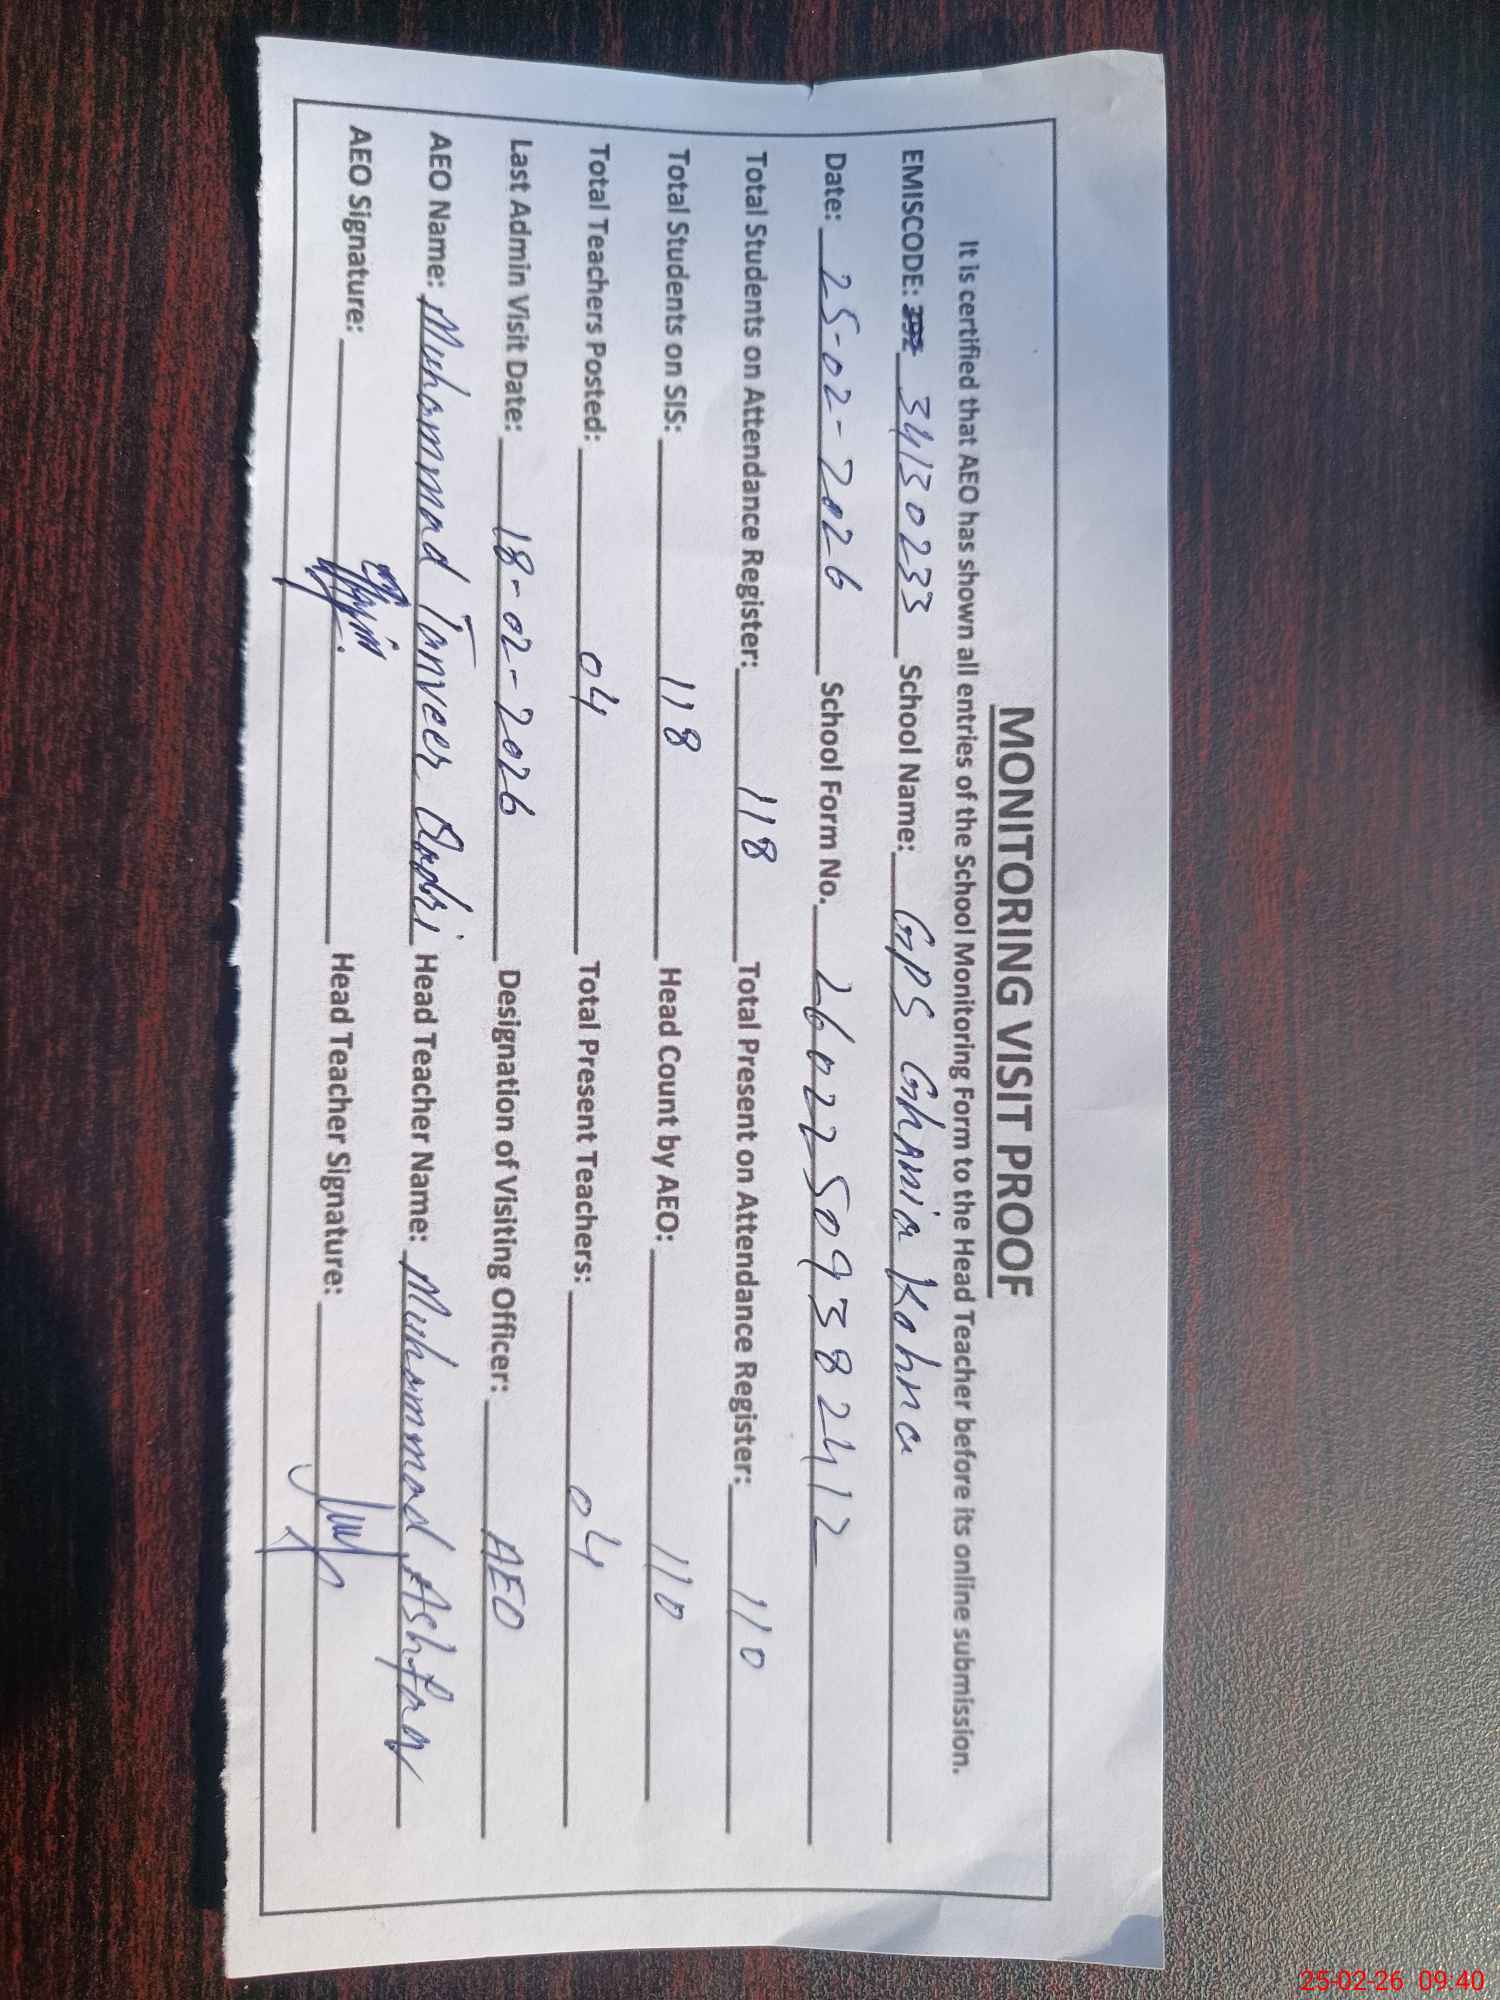 MONITORING VISIT PROOF
It is certified that AEO has shown all entries of the School Monitoring Form to the Head Teacher before its online submission.
EMISCODE: 34130233 School Name: GPS Ghania Kohna
Date: 25-02-2026 School Form No. 26022509382412
Total Students on Attendance Register: 118 Total Present on Attendance Register: 110
Total Students on SIS: 118 Head Count by AEO: 110
Total Teachers Posted: 04 Total Present Teachers: 04
Last Admin Visit Date: 18-02-2026 Designation of Visiting Officer: AEO
AEO Name: Muhammad Tanveer Qadri Head Teacher Name: Muhammad Ashfaq
AEO Signature: Head Teacher Signature:
25-02-26 09:40